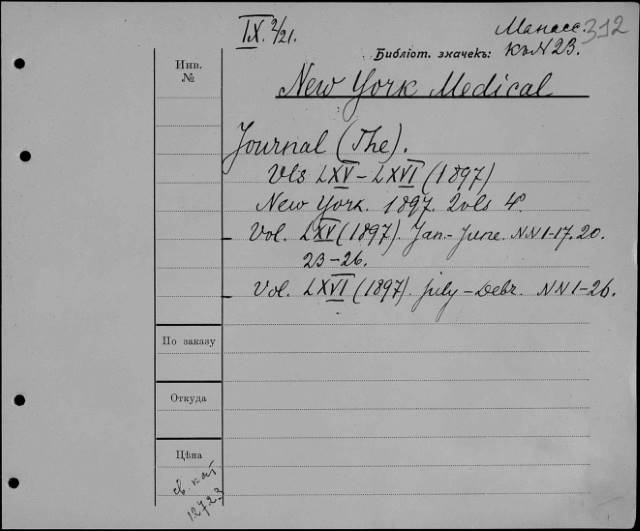 IX. 2/21.
Манасс. 312
Библіот. значекъ: къ N 23.
Инв.
№
New York Medical
Journal (The).
Vls LXV – LXVI (1897)
New York. 1897. 2 vols 4°.
– Vol. LXV (1897). Jan – June. NN 1-17. 20.
23 – 26.
– Vol. LXVI (1897). july – Debr. NN 1-26.
По заказу
Откуда
Цѣна
св. кат
12723